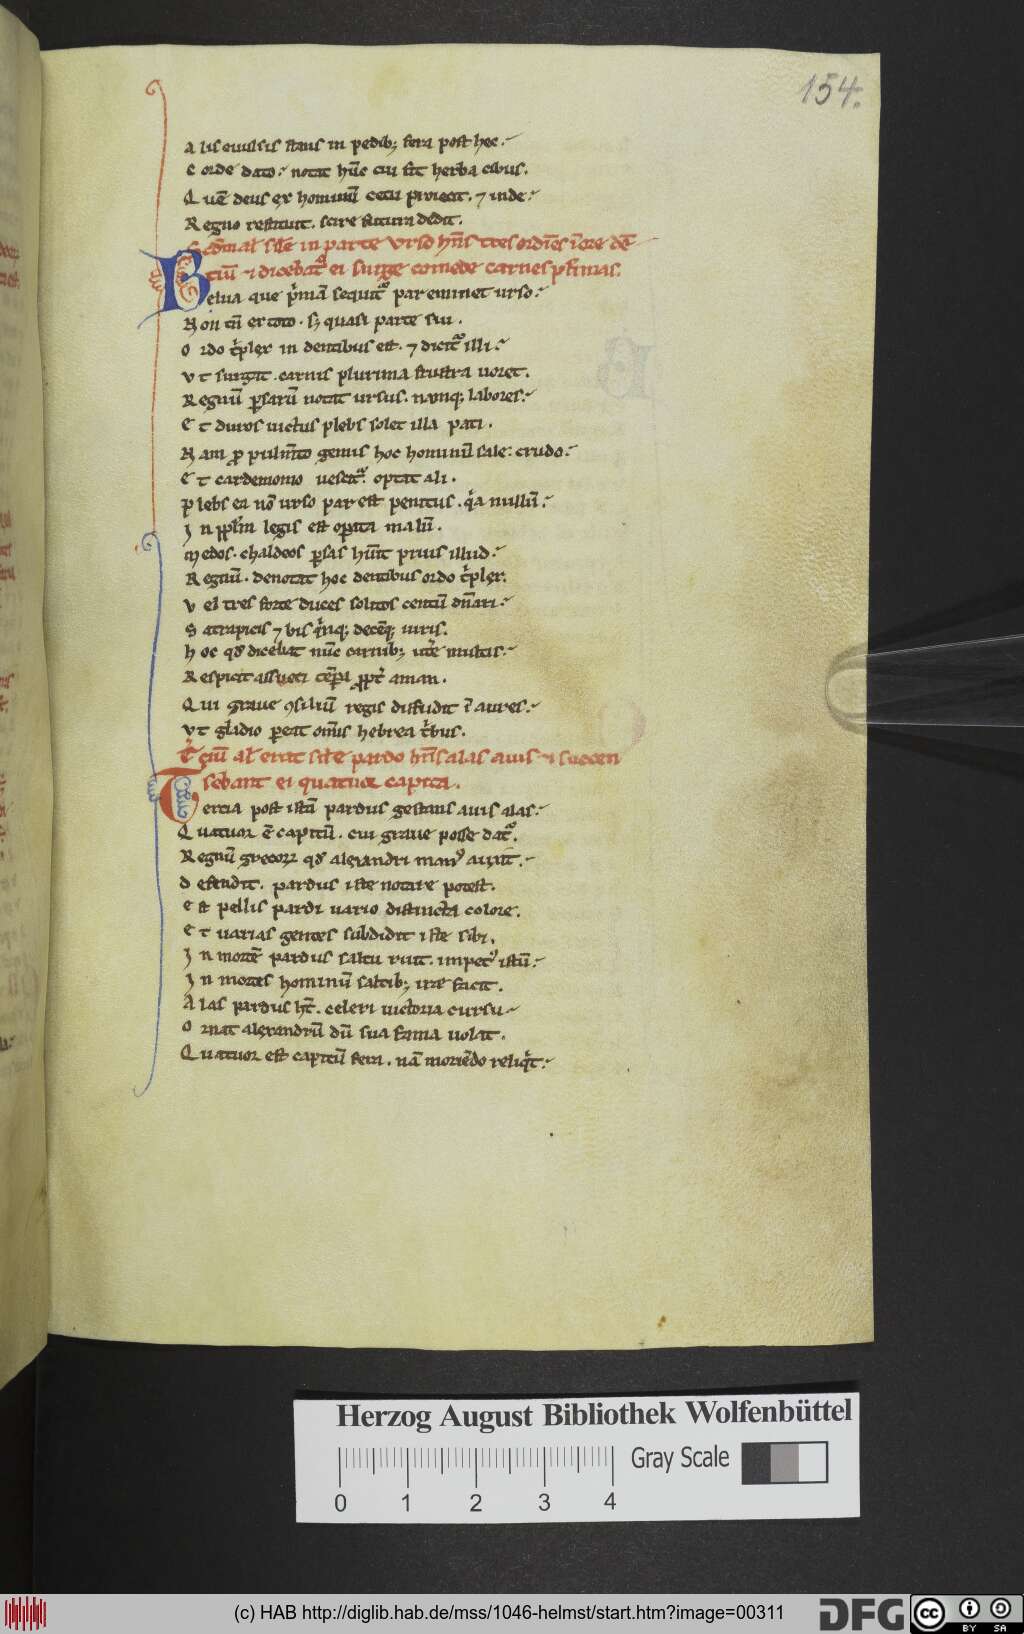 154.
A lis euulsis stans in pedib; fera post hec.
C orde dato. notat hūc cui fit herba cibus.
Q uē deus ex hominū cetu proiecit. ⁊ inde.
R egno restituit. scire futura dedit.
S cdm̄ al' sīle in parte vrso hn̄s tres ordīes ī ore dē
tiū ⁊ dicebat ei surge comede carnes pͥmas.
B elua que pͥmā sequitᷣ par eminet urso.
N on tn̄ ex toto. s; quasi parte sui.
O rdo tͥplex in dentibus est. ⁊ dicitᷣ illi.
V t surgat. carnis plurima frustra uoret.
R egnū ꝑsarū notat ursus. nanq; labores.
E t duros uictus plebs solet illa pati.
N am ꝓ pulm̄to genus hoc hominū sale. crudo.
E t cardemomo uescitᷣ. optat ali.
P lebs ea nō urso par est penitus. qͥa nullū.
I n ppl'm legis est oꝑata malū.
M edos. chaldeos ꝑsas hūit prius illud.
R egnū. denotat hoc dentibus ordo tͥplex.
V el tres forte duces solitos centū dn̄ari.
S atrapicis ⁊ bis qͥnq; decēq; uiris.
H oc qd' dicebat nūc carnib; utͤre multis.
R espicit assueri tēpa ꝓpt' aman.
Q ui graue ꝯsiliū regis diffudit ī aures.
V t gladio ꝑeat om̄is hebrea tͥbus.
Tͨ ciū al' erat sīle pardo hn̄s alas auis ⁊ succen
sebant ei quatuor capita.
T ercia post istā pardus gestans auis alas.
Q uatuor ē capitū. cui graue posse datᷣ.
R egnū grecoꝝ qd' alexandri manꝰ auxit.
D efendit. pardus iste notare potest.
E st pellis pardi uario distincta colore.
E t uarias gentes subdidit iste sibi.
I n mortē pardus saltu ruit. impetꝰ istū.
I n mortes hominū saltib; ire facit.
A las pardus ht̄. celeri uictoria cursu
O rnat alexandrū dū sua fama uolat.
Q uatuor est capitū fera. nā moriēdo reliqͥt.
Herzog August Bibliothek Wolfenbüttel
Gray Scale
0 1 2 3 4
(c) HAB http://diglib.hab.de/mss/1046-helmst/start.htm?image=00311
DFG
cc BY SA